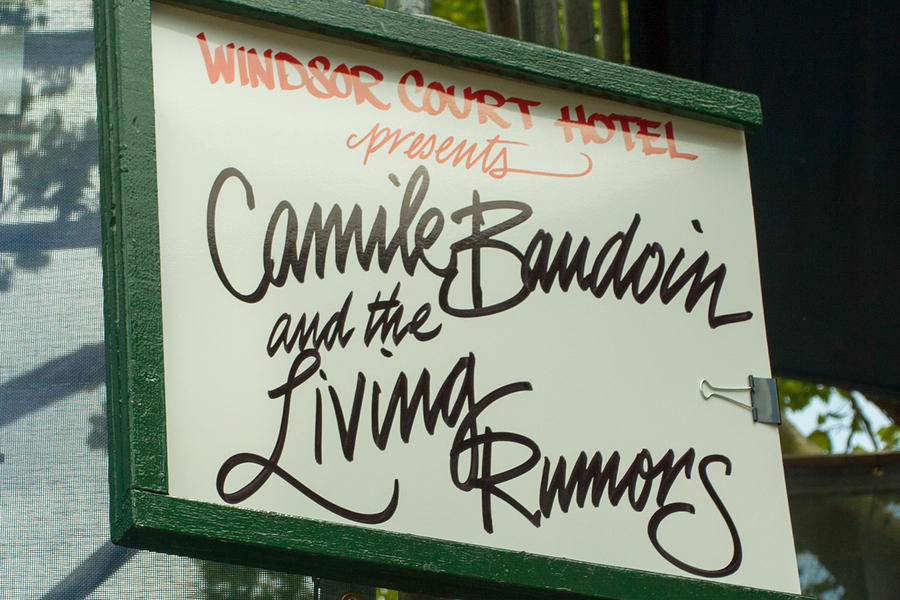 WINDSOR COURT HOTEL
presents
Camile Baudoin
and the
Living
Rumors